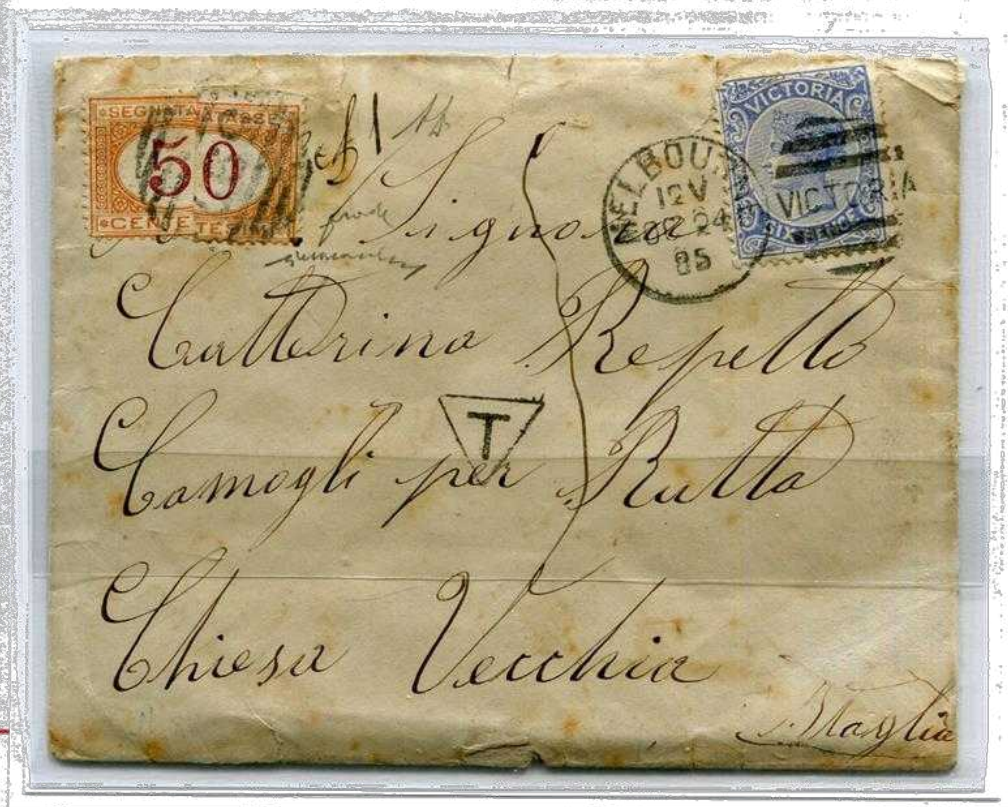 SEGNATASSE
50
CENTE TESIMI
VICTORIA
SIXPENCE
MELBOUR
12 V
OC 24
85
VICTORIA
Signora
Catterina Repetto
T
Camogli per Rutta
Chiesa Vecchia
Itaglia